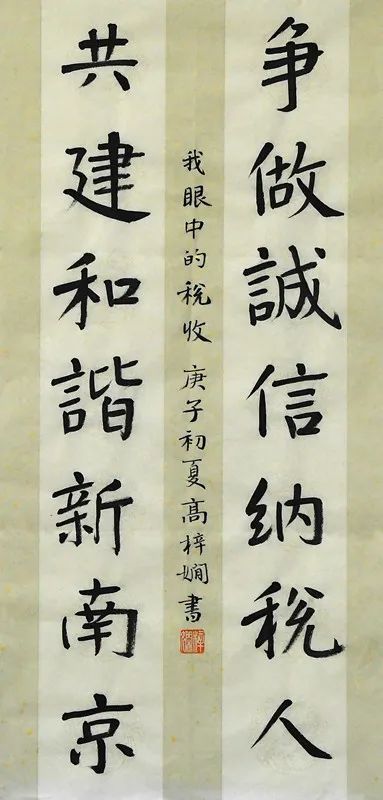 争做誠信纳税人
共建和諧新南京
我眼中的税收 庚子初夏高梓嫺書